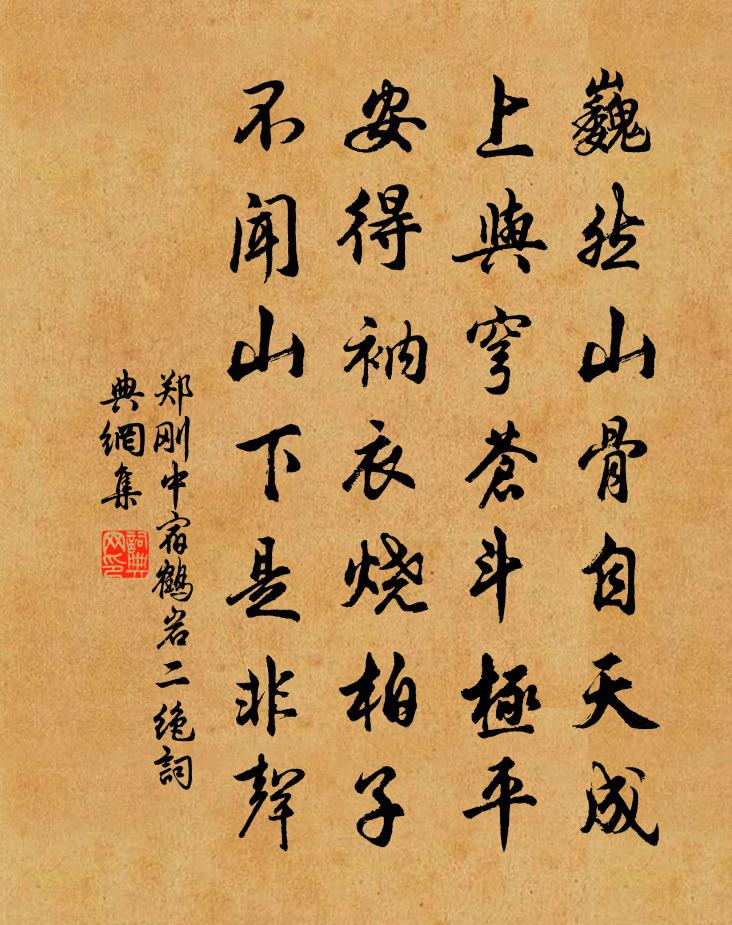 巍然山骨自天成
上與穹蒼斗極平
安得衲衣烧柏子
不闻山下是非聲
郑刚中宿鹤岩二绝詞
典網集
詞典
网印